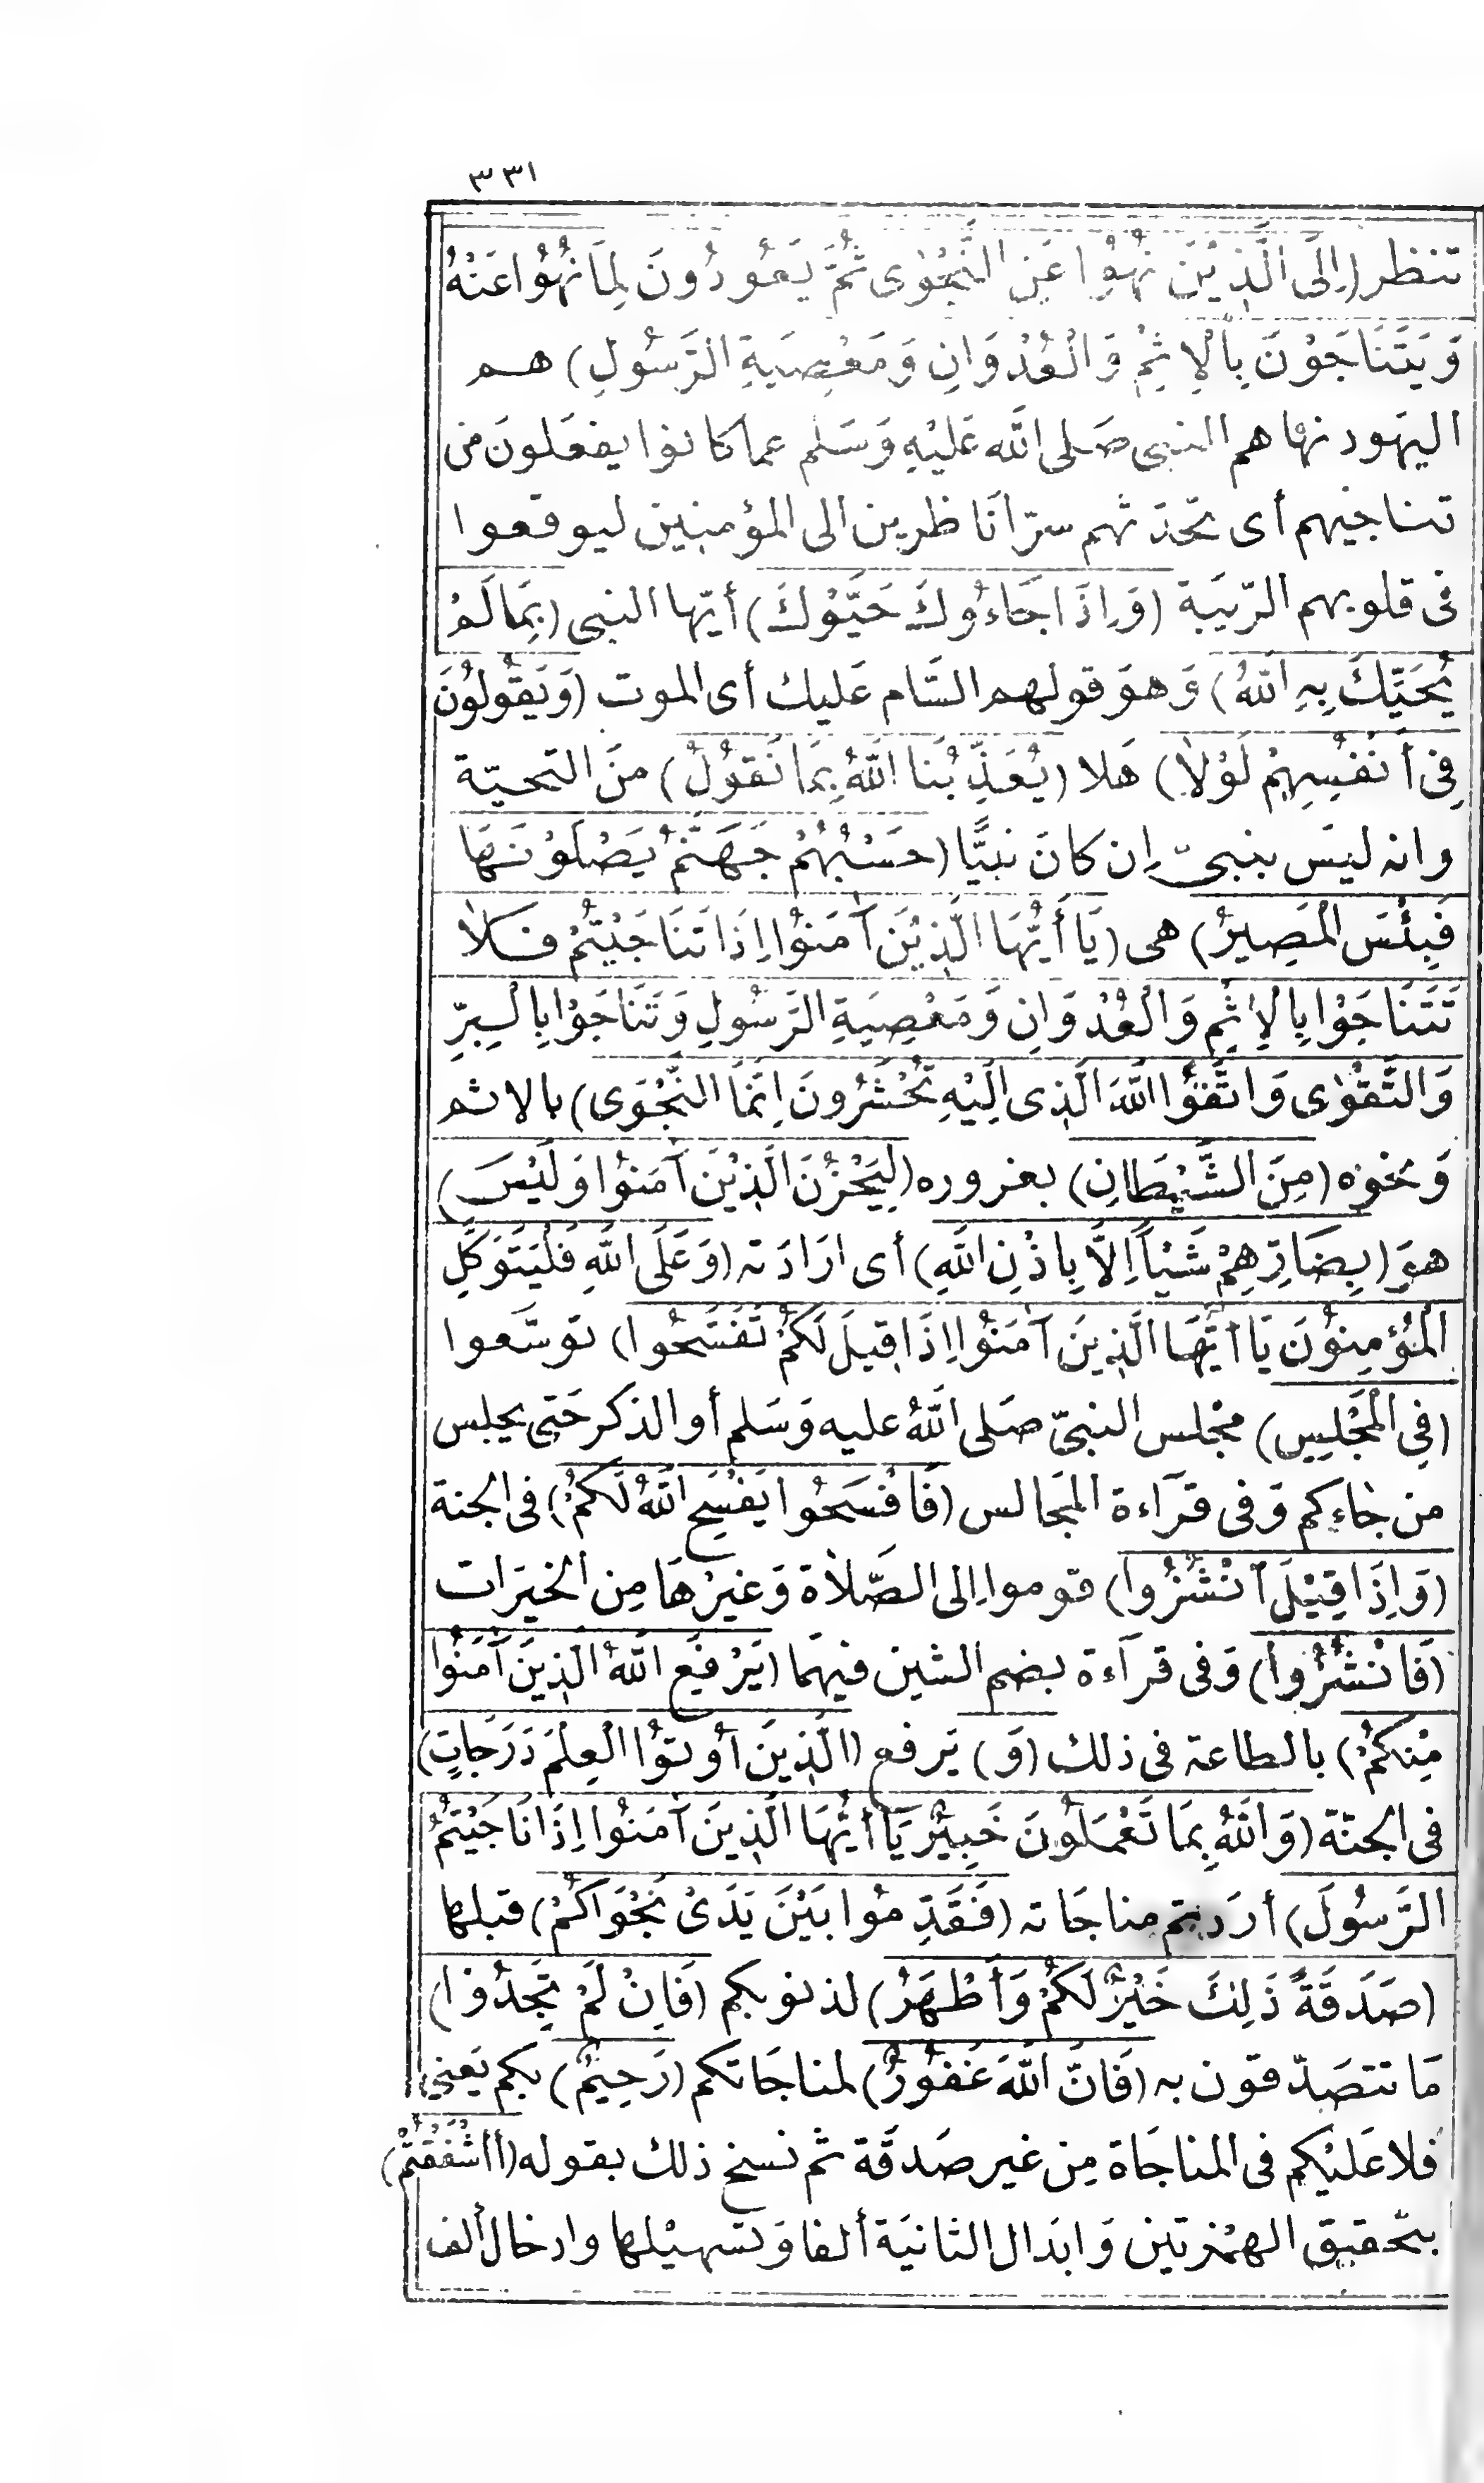 ٣٣١
تنظر (إِلَى الَّذِيْنَ نُهُوْا عَنِ النَّجْوٰى ثُمَّ يَعُوْدُونَ لِمَا نُهُوْا عَنْهُ
وَيَتَنَاجَوْنَ بِالْاِثْمِ وَالْعُدْوَانِ وَمَعْصِيَةِ الرَّسُوْلِ) هم
اليهود نهاهم النبى صَلى اللّٰه عَليْهِ وَسَلم عما كانوا يفعَلونَ من
تناجيهم أى تحدّثهم سرّا نَاظرين الى المؤمنين ليوقعوا
فى قلوبهم الرّيبَة (وَاِذَا جَاءُوكَ حَيَّوْكَ) أيّها النبى (بِمَا لَمْ
يُحَيِّكَ بِهِ اللّٰهُ) وَهوَ قولهم السَّام عَليك أى الموت (وَيَقُولُوْنَ
فِى أَنْفُسِهِمْ لَوْلَا) هَلا (يُعَذِّبُنَا اللّٰهُ بِمَا نَقُوْلُ) منَ التحيّة
وانه ليسَ بنبىّ إن كانَ نبيًّا (حَسْبُهُمْ جَهَنَّمُ يَصْلَوْنَهَا
فَبِئْسَ الْمَصِيرُ) هى (يَا أَيُّهَا الَّذِيْنَ آمَنُوْا اِذَا تَنَاجَيْتُمْ فَلَا
تَتَنَاجَوْا بِالْاِثْمِ وَالْعُدْوَانِ وَمَعْصِيَةِ الرَّسُولِ وَتَنَاجَوْا بِالْبِرِّ
وَالتَّقْوٰى وَاتَّقُوا اللّٰهَ الَّذِى اِلَيْهِ تُحْشَرُونَ اِنَّمَا النَّجْوَى) بالاثم
وَنحوه (مِنَ الشَّيْطَانِ) بغروره (لِيَحْزُنَ الَّذِيْنَ آمَنُوْا وَلَيْسَ)
هوَ (بِضَارِّهِمْ شَيْئًا اِلَّا بِاِذْنِ اللّٰهِ) أى ارَادَته (وَعَلَى اللّٰهِ فَلْيَتَوَكَّلِ
الْمُؤْمِنُوْنَ يَا اَيُّهَا الَّذِينَ آمَنُوْا اِذَا قِيلَ لَكُمْ تَفَسَّحُوا) توسَّعوا
(فِى الْمَجْلِسِ) مجْلس النبىّ صَلى اللّٰهُ عليه وَسَلم أو الذكر حَتى يجلس
من جَاءكم وَفى قرَآءة المجَالس (فَافْسَحُوا يَفْسَحِ اللّٰهُ لَكُمْ) فى الجنة
(وَاِذَا قِيْلَ انْشُزُوا) قوموا اِلى الصَّلاة وَغيرْهَا مِن الخيرَات
(فَانْشُزُوا) وَفى قرآءة بضم الشين فيهَما (يَرْفَعِ اللّٰهُ الَّذِينَ آمَنُوْا
مِنْكُمْ) بالطاعة فى ذلك (وَ) يَرفع (الَّذِينَ أُوتُوْا الْعِلْمَ دَرَجَاتٍ)
فى الجنّة (وَاللّٰهُ بِمَا تَعْمَلُونَ خَبِيْرٌ يَآ أَيُّهَا الَّذِينَ آمَنُوْا اِذَا نَاجَيْتُمُ
الرَّسُولَ) أرَدتم مناجَاته (فَقَدِّمُوا بَيْنَ يَدَىْ نَجْوَاكُمْ) قبلها
(صَدَقَةً ذَلِكَ خَيْرٌ لَكُمْ وَأَطْهَرُ) لذنوبكم (فَاِنْ لَمْ تَجِدُوا)
مَا تتصَدّقون به (فَاِنَّ اللّٰهَ غَفُوْرٌ) لمناجَاتكم (رَحِيمٌ) بكم يَعنى
فلا عَليْكم فى المناجَاة مِن غير صَدقَة ثم نسخ ذلك بقوله (أاشْفَقْتُمْ)
بتحقيق الهمْزتين وَابدَال الثانيَة ألفا وَتسهيْلها وادخال ألف